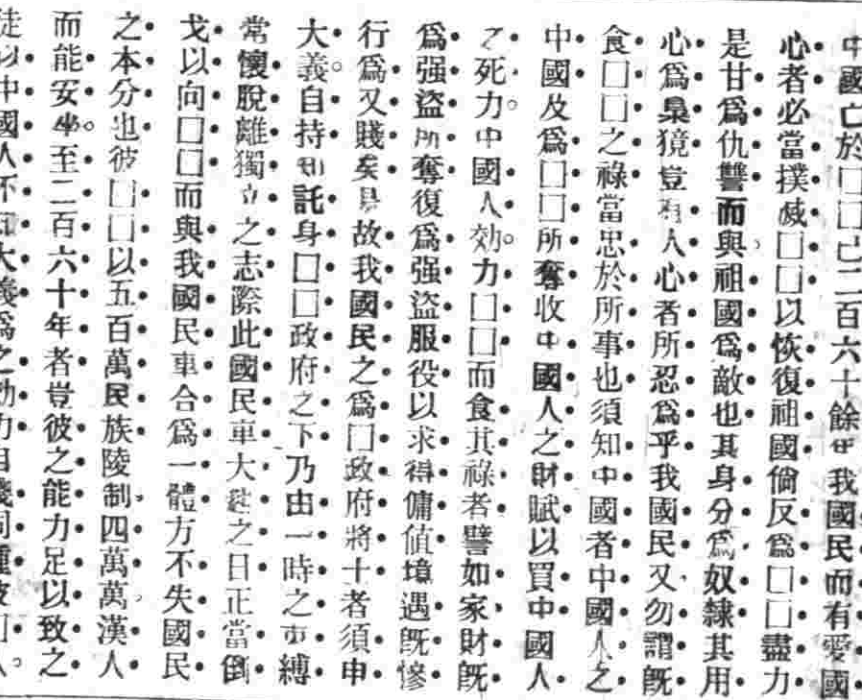 中國亡於□□已二百六十餘年我國民而有愛國
心者必當撲滅□□以恢復祖國倘反爲□□盡力
是甘爲仇讐而與祖國爲敵也其身分爲奴隸其用
心爲梟獍豈有人心者所忍爲乎我國民又勿謂旣
食□□之祿當忠於所事也須知中國者中國人之
中國及爲□□所奪收中國人之財賦以買中國人
之死力中國人効力□□而食其祿者譬如家財旣
爲强盜所奪復爲强盜服役以求得傭値境遇旣慘
行爲又賤矣是故我國民之爲□政府將士者須申
大義自持知託身□□政府之下乃由一時之束縛
常懷脫離獨立之志際此國民軍大起之日正當倒
戈以向□□而與我國民軍合爲一體方不失國民
之本分也彼□□以五百萬民族陵制四萬萬漢人
而能安坐至二百六十年者豈彼之能力足以致之
徒以中國人不知大義爲之効力自殘同種彼□人